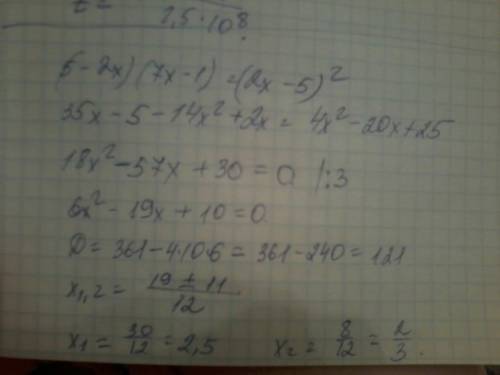 t =
2,5·10⁸.
(5-2x)(7x-1)=(2x-5)²
35x-5-14x²+2x=4x²-20x+25
18x²-57x+30=0 |:3
6x²-19x+10=0
D=361-4·10·6=361-240=121
x₁,₂= (19±11)/12
x₁=30/12=2,5 x₂=8/12=2/3.